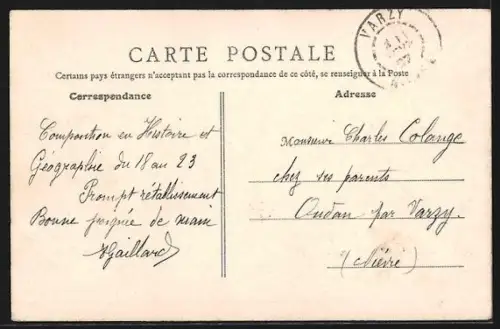 VARZY
CARTE POSTALE
Certains pays étrangers n'acceptant pas la correspondance de ce côté, se renseigner à la Poste
Correspondance
Adresse
Composition en Histoire et
Géographie du 18 au 23
Prompt rétablissement
Bonne poignée de main
Gaillard
Monsieur Charles Colange
chez ses parents
Oudan par Varzy.
(Nièvre)